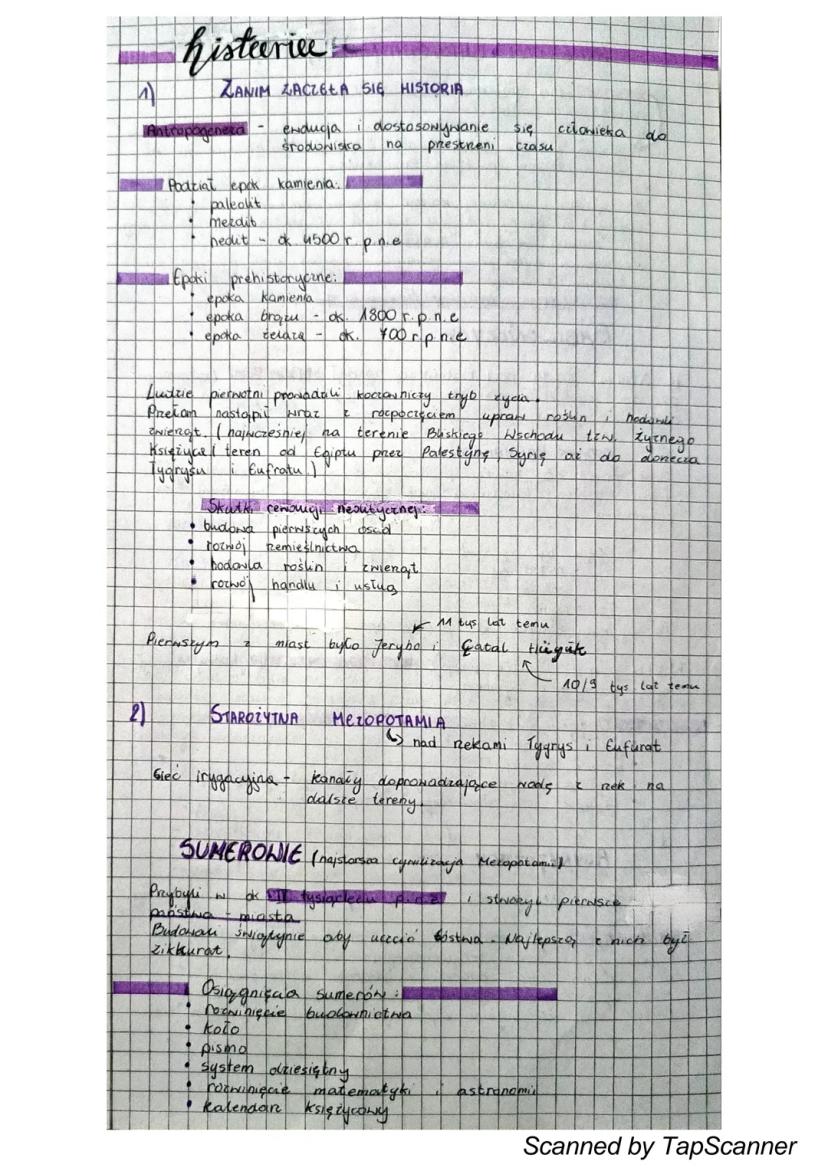 historiee
1) ZANIM ZACZĘŁA SIĘ HISTORIA
Antropogeneza - ewolucja i dostosowywanie się człowieka do
środowiska na przestrzeni czasu
Podział epok kamienia:
• paleolit
• mezolit
• neolit - ok 4500 r. p.n.e
Epoki prehistoryczne:
• epoka kamienia
• epoka brązu - ok. 1800 r. p.n.e
• epoka żelaza - ok. 700 r. p.n.e
Ludzie pierwotni prowadzili koczowniczy tryb życia.
Przełom nastąpił wraz z rozpoczęciem upraw roślin i hodowli
zwierząt. (najwcześniej na terenie Bliskiego Wschodu tzw. żyznego
Księżyca (teren od Egiptu przez Palestynę, Syrię aż do dorzecza
Tygrysu i Eufratu.)
Skutki rewolucji neolitycznej:
• budowa pierwszych osad
• rozwój rzemieślnictwa
• hodowla roślin i zwierząt
• rozwój handlu i usług
11 tys lat temu
Pierwszym z miast było Jerycho i Çatal Hüyük
10/9 tys lat temu
2) STAROŻYTNA MEZOPOTAMIA
nad rzekami Tygrys i Eufurat
Sieć irygacyjna - kanały doprowadzające wodę z rzek na
dalsze tereny.
SUMEROWIE (najstarsza cywilizacja Mezopotamii)
Przybyli w ok tysiącleciu p.n.e i stworzyli pierwsze
państwa - miasta
Budowali świątynie aby uczcić bóstwa. Najlepszą z nich był
zikkurat.
Osiągnięcia sumerów:
• rozwinięcie budownictwa
• koło
• pismo
• system dziesiętny
• rozwinięcie matematyki i astronomii
• kalendarz księżycowy
Scanned by TapScanner